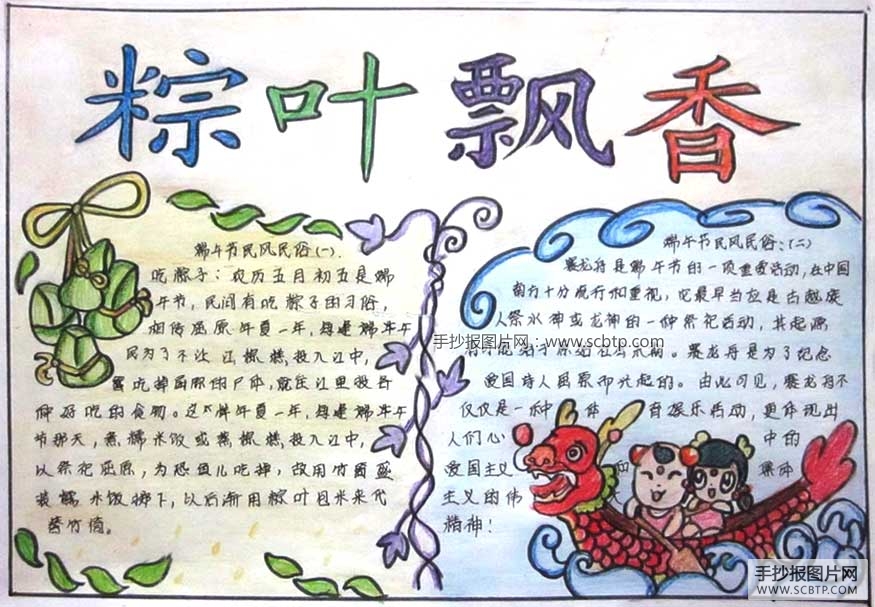 粽叶飘香
端午节民风民俗(一).
吃粽子：农历五月初五是端
午节，民间有吃粽子的习俗，
相传屈原 一年，每逢端午
民为了不让 江 投入江中，
吃掉屈原的尸体，就往江里投各
种好吃的食物。这 一年，每逢端午
节那天，煮糯米饭或蒸 糕投入江中，
以祭祀屈原，为恐鱼儿吃掉，故用竹筒盛
装糯米饭掷下，以后渐用粽叶包米来代
替竹筒。
端午节民风民俗：(二)
赛龙舟是端午节的一项重要活动，在中国
南方十分流行和重视，它最早当应是古越族
人祭水神或龙神的一种祭祀活动，其起源
赛龙舟是为了纪念
爱国诗人屈原而兴起的。由此可见，赛龙舟不
仅仅是一种 体 育娱乐活动，更体现出
人们心 中的
爱国主义 和 集体
主义的伟 大
精神！
手抄报图片网：www.scbtp.com
手抄报图片网
WWW.SCBTP.COM